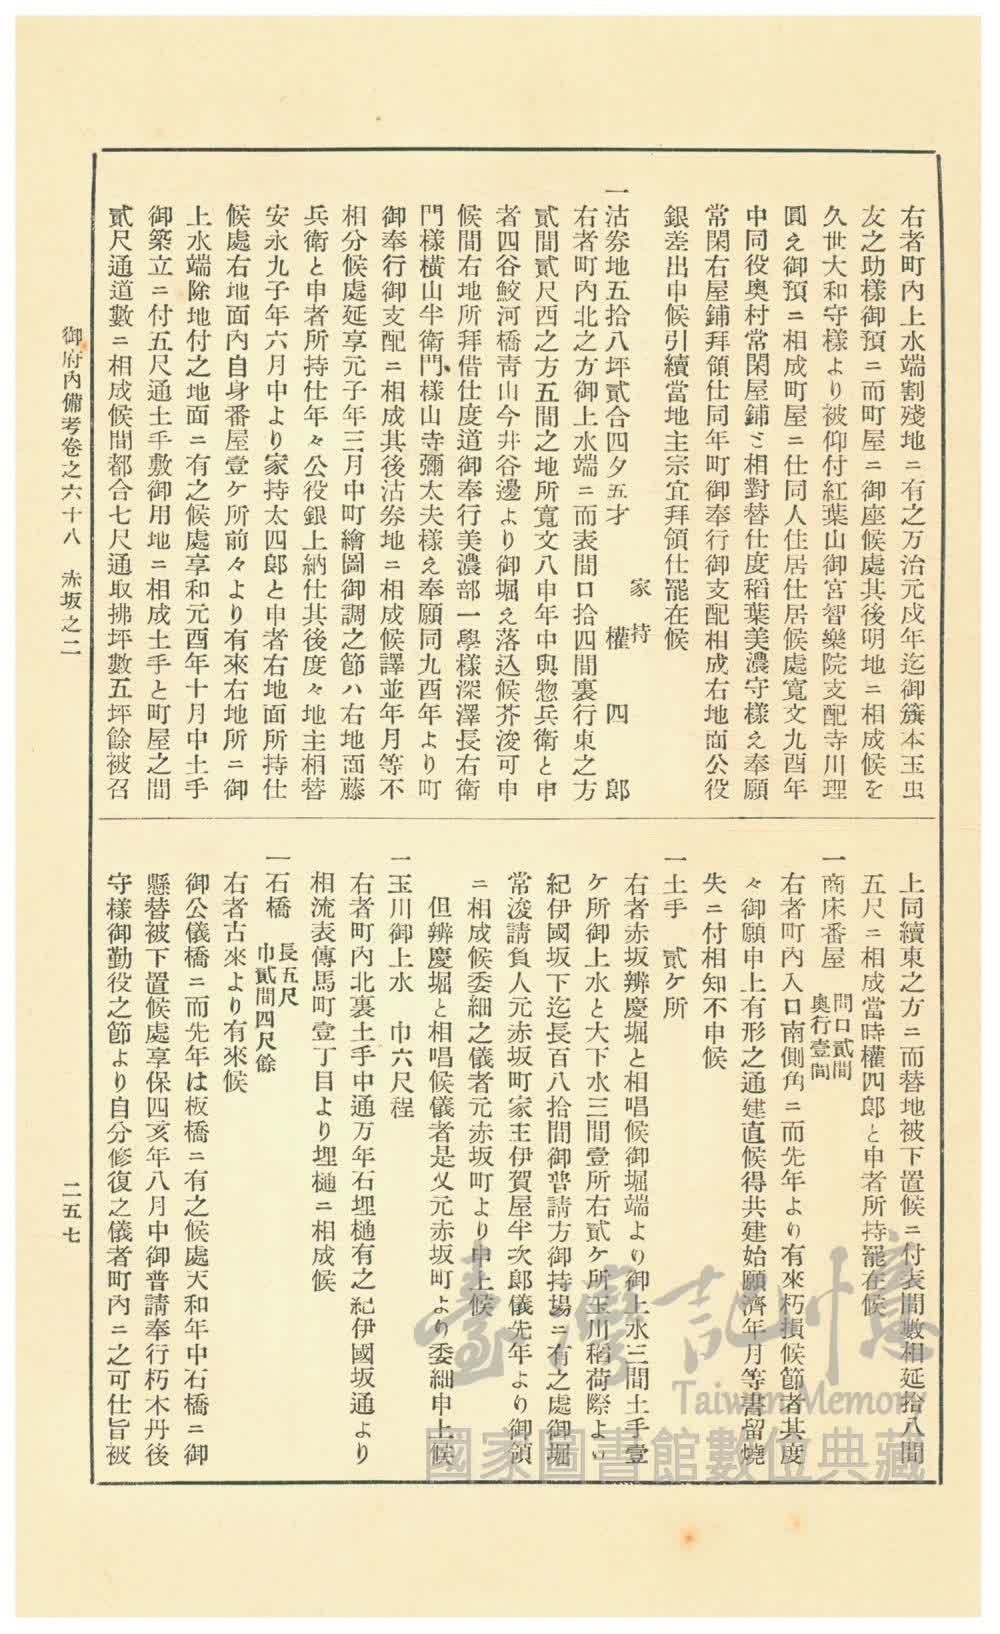 右者町內上水端割殘地ニ有之万治元戌年迄御簱本玉虫
友之助樣御預ニ而町屋ニ御座候處其後明地ニ相成候を
久世大和守樣より被仰付紅葉山御宮智樂院支配寺川理
圓え御預ニ相成町屋ニ仕同人住居仕居候處寬文九酉年
中同役奧村常閑屋鋪ミ相對替仕度稻葉美濃守樣え奉願
常閑右屋鋪拜領仕同年町御奉行御支配相成右地面公役
銀差出申候引續當地主宗宜拜領仕罷在候
家持
權四郞
一沽券地五拾八坪貳合四夕五才
右者町內北之方御上水端ニ而表間口拾四間裏行東之方
貳間貳尺西之方五間之地所寬文八申年中與惣兵衞と申
者四谷鮫河橋靑山今井谷邊より御堀え落込候芥浚可申
候間右地所拜借仕度道御奉行美濃部一學樣深澤長右衞
門樣橫山半衞門樣山寺彌太夫樣え奉願同九酉年より町
御奉行御支配ニ相成其後沽券地ニ相成候譯並年月等不
相分候處延享元子年三月中町繪圖御調之節ハ右地面藤
兵衞と申者所持仕年々公役銀上納仕其後度々地主相替
安永九子年六月中より家持太四郞と申者右地面所持仕
候處右地面內自身番屋壹ケ所前々より有來右地所ニ御
上水端除地付之地面ニ有之候處享和元酉年十月中土手
御築立ニ付五尺通土手敷御用地ニ相成土手と町屋之間
貳尺通道敷ニ相成候間都合七尺通取拂坪數五坪餘被召
上同續東之方ニ而替地被下置候ニ付表間數相延拾八間
五尺ニ相成當時權四郞と申者所持罷在候
一商床番屋 間口貳間
奧行壹間
右者町內入口南側角ニ而先年より有來朽損候節者其度
々御願申上有形之通建直候得共建始願濟年月等書留燒
失ニ付相知不申候
一土手 貳ケ所
右者赤坂辨慶堀と相唱候御堀端より御上水三間土手壹
ケ所御上水と大下水三間壹所右貳ケ所玉川稻荷際よい
紀伊國坂下迄長百八拾間御普請方御持場ニ有之處御堀
常浚請負人元赤坂町家主伊賀屋半次郞儀先年より御預
ニ相成候委細之儀者元赤坂町より申上候
但辨慶堀と相唱候儀者是又元赤坂町より委細申上候
一玉川御上水 巾六尺程
右者町內北裏土手中通万年石埋樋有之紀伊國坂通より
相流表傳馬町壹丁目より埋樋ニ相成候
一石橋 長五尺
巾貳間四尺餘
右者古來より有來候
御公儀橋ニ而先年は板橋ニ有之候處天和年中石橋ニ御
懸替被下置候處享保四亥年八月中御普請奉行朽木丹後
守樣御勤役之節より自分修復之儀者町內ニ之可仕旨被
御府內備考卷之六十八 赤坂之二
二五七
臺灣記憶
Taiwan Memory
國家圖書館數位典藏